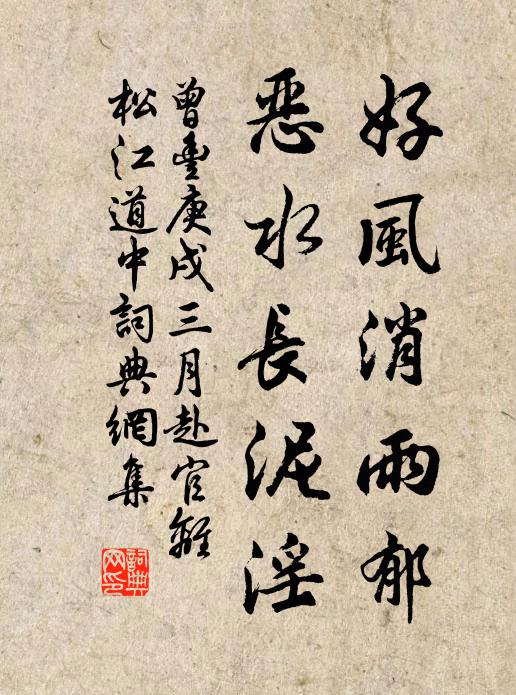 好風消雨郁
惡水長泥淫
曾豊庚戌三月赴官離
松江道中詞典網集
詞典
网印